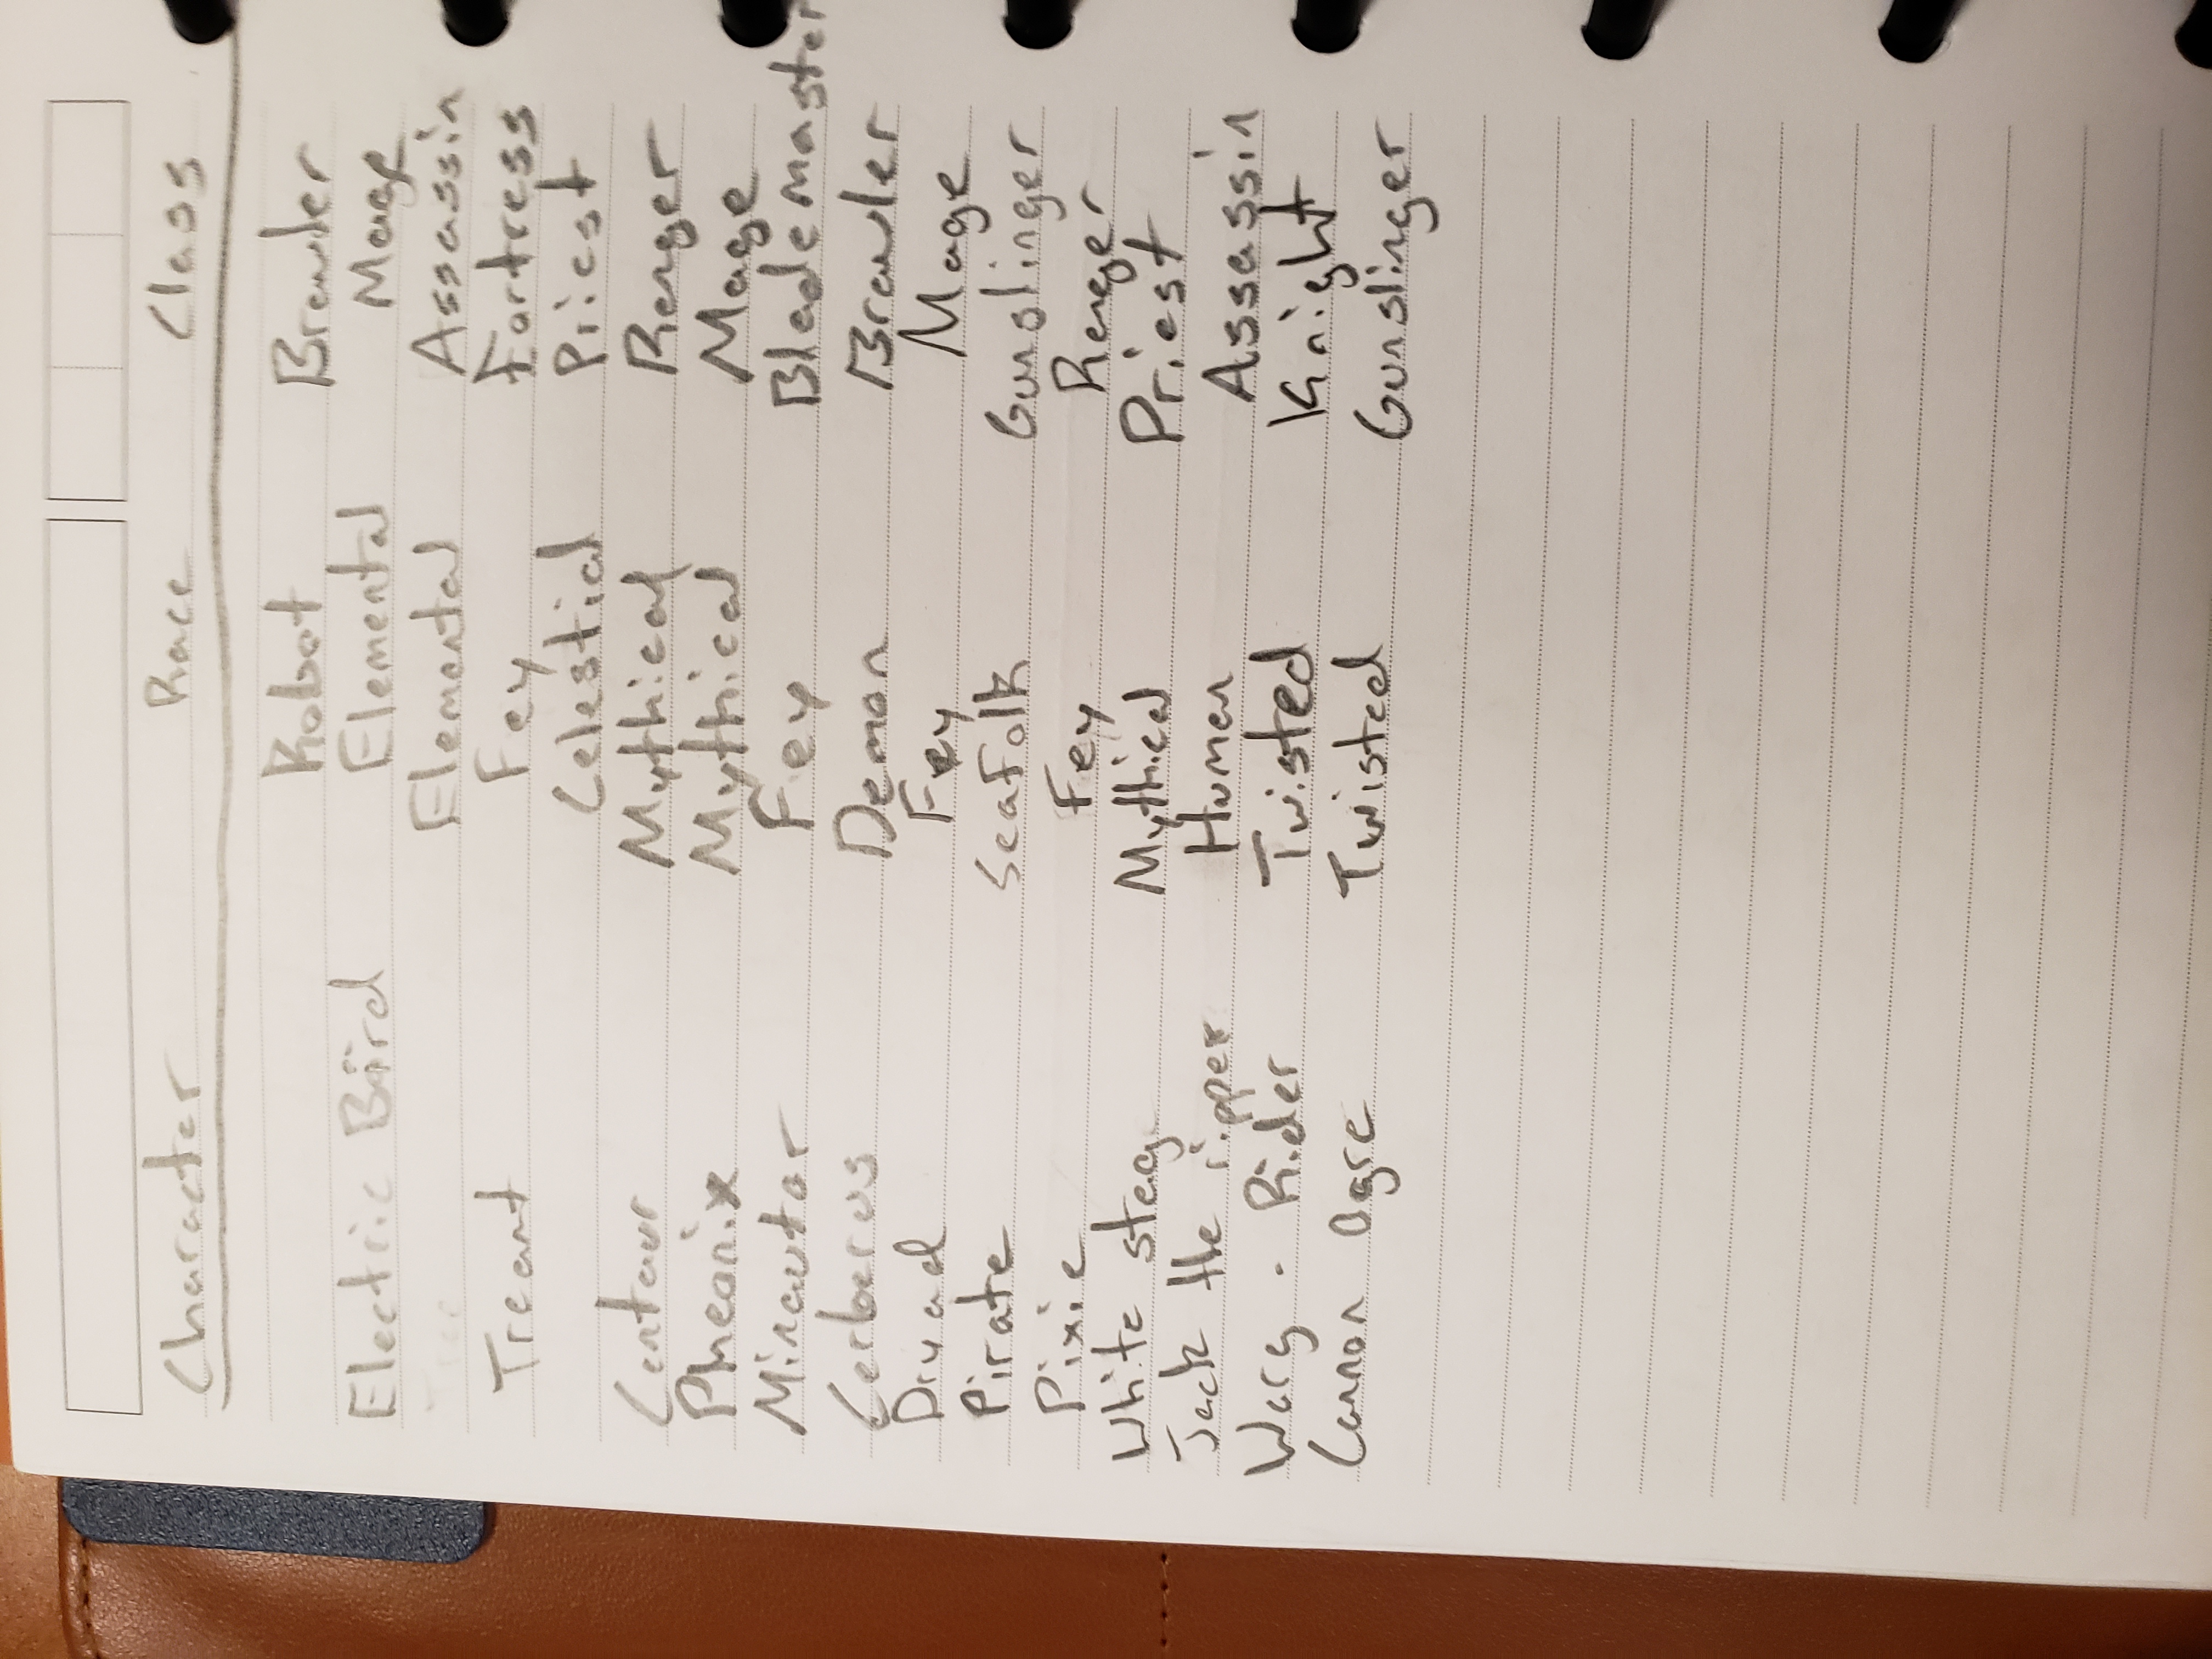 Character Race Class
Robot Brawler
Electric Börd Elemental Mage
Tree Elemental Assassin
Treant Fey Fortress
Celestial Priest
Centaur Mythical Ranger
Pheonix Mythical Mage
Minautor Fey Blademaster
Cerberus Demon Brawler
Dryad Fey Mage
Pirate SeaFolk Gunslinger
Pixie Fey Ranger
White stag Mythical Priest
Jack the ripper Human Assassin
Warg - Rider Twisted Knight
Cannon Ogre Twisted Gunslinger